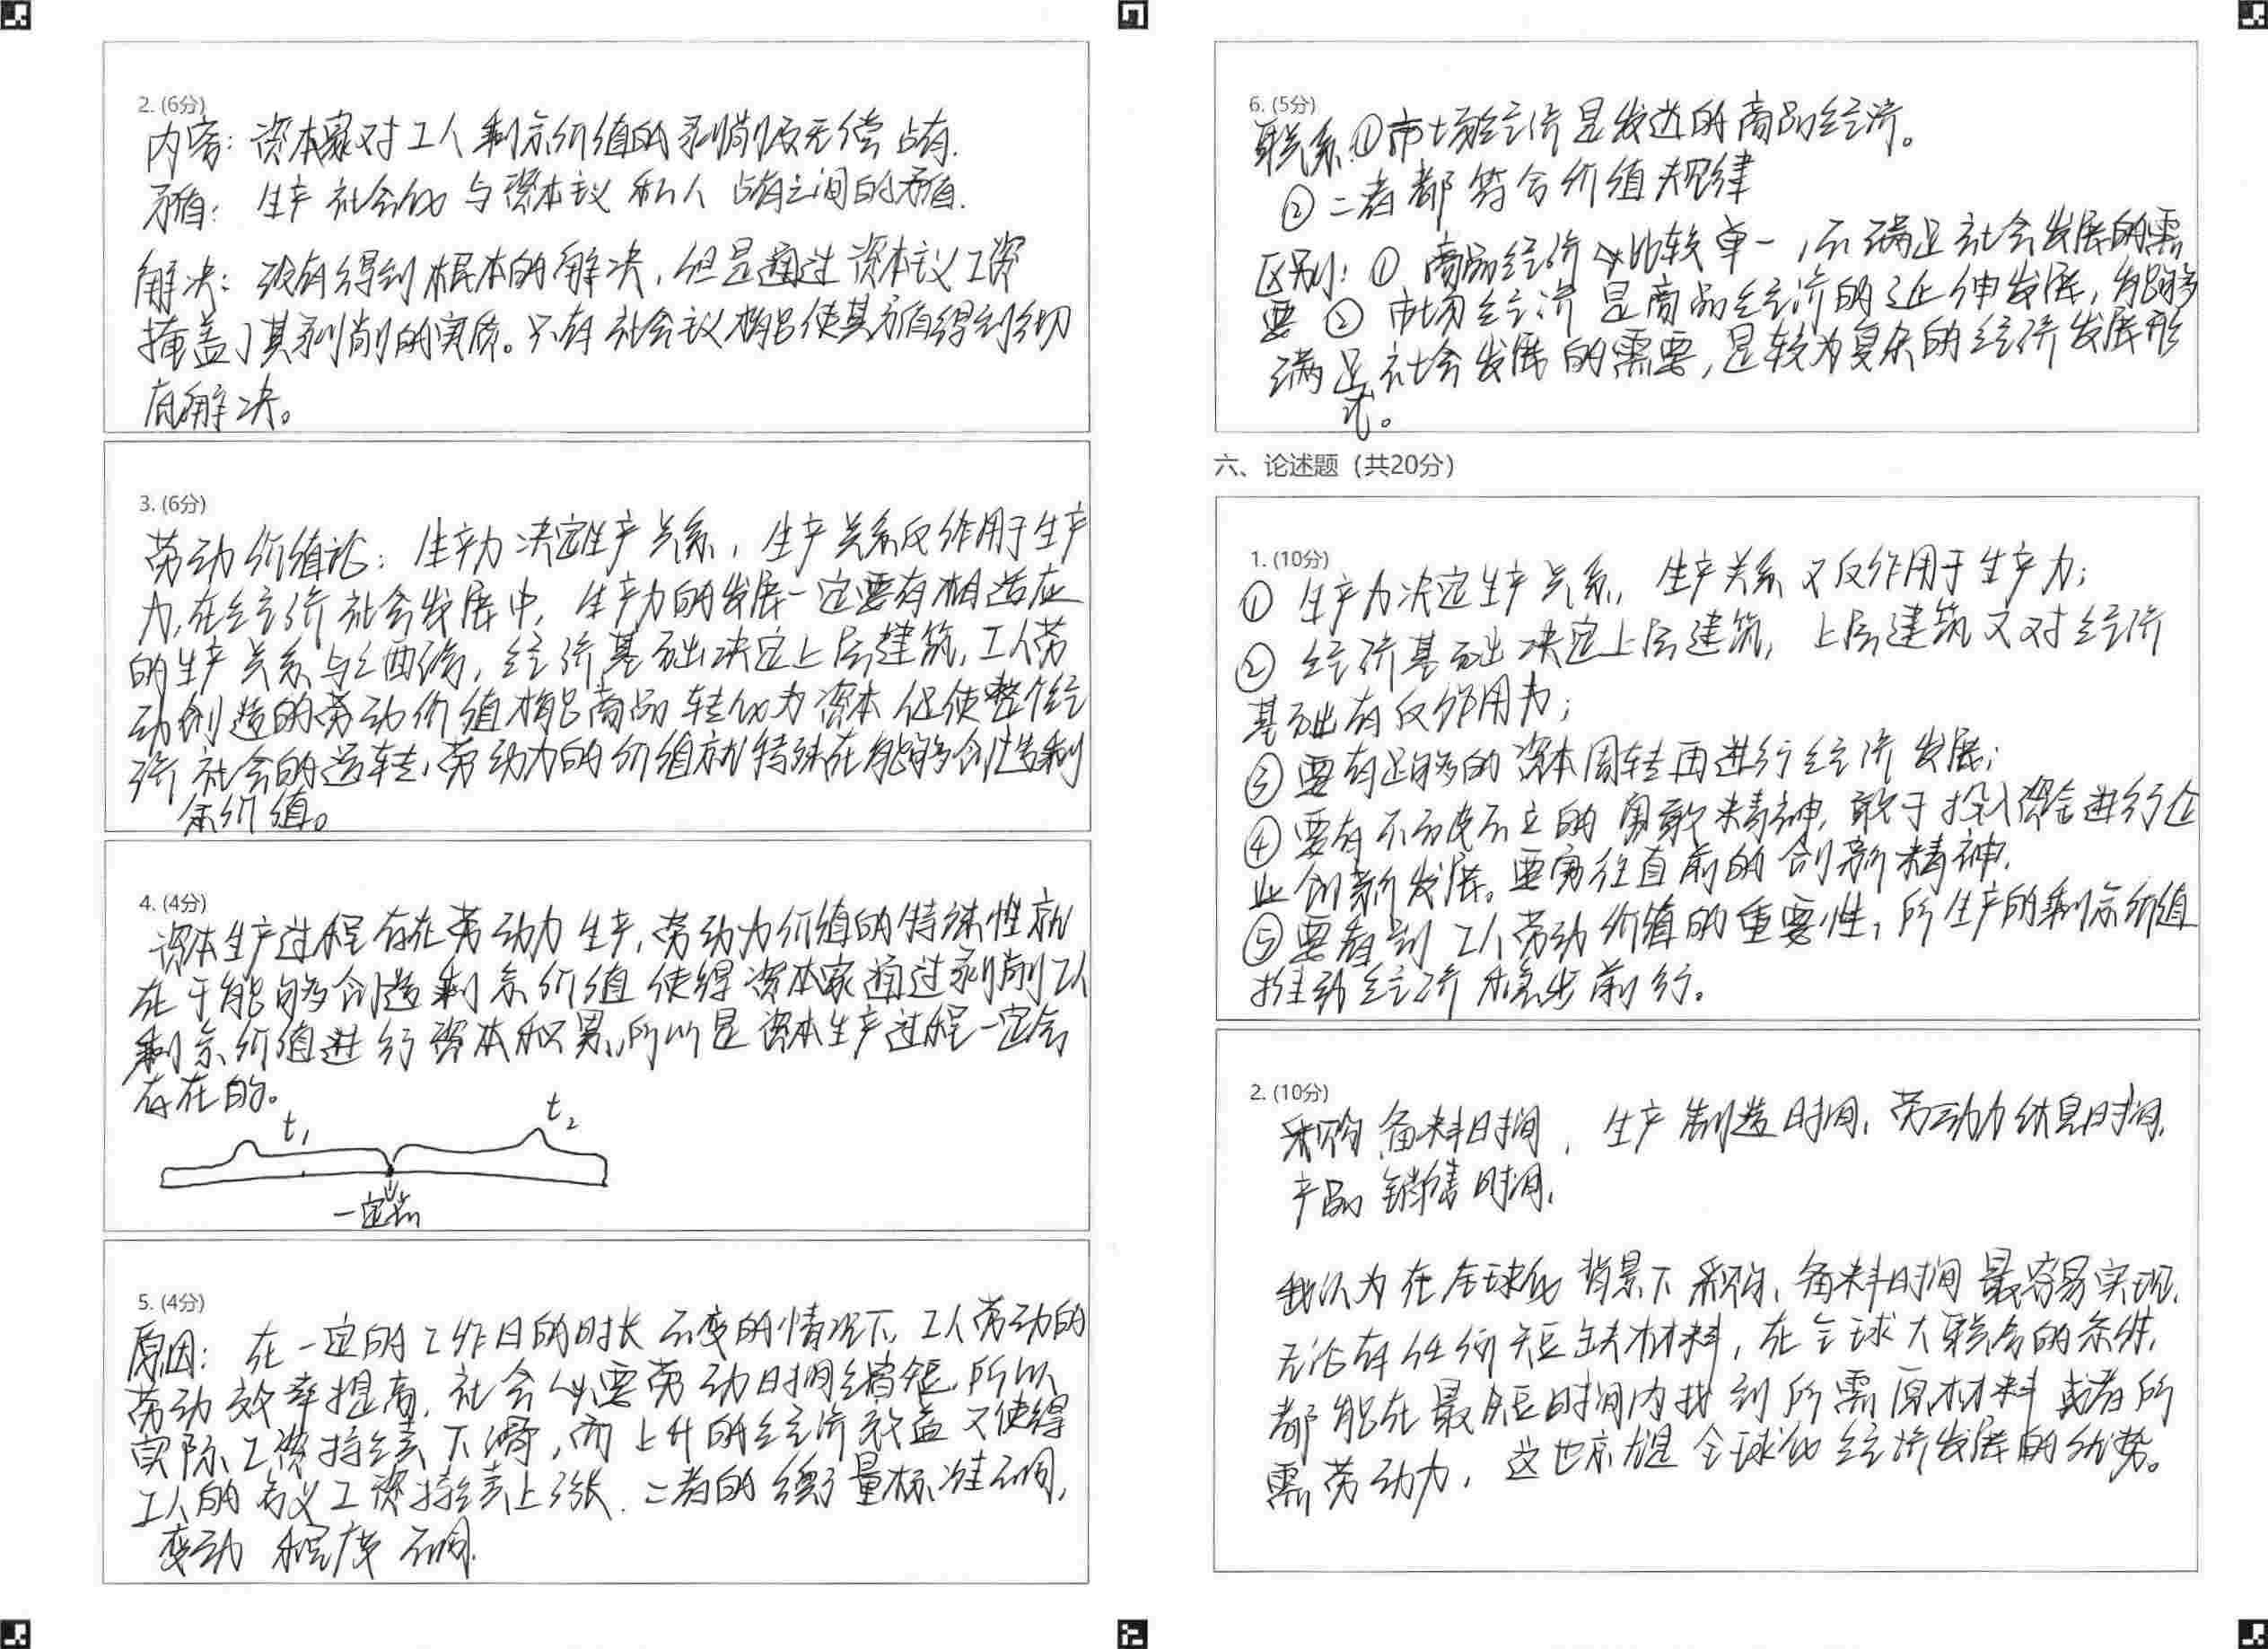 2. (6分)
内容：资本家对工人剩余价值的剥削及无偿占有.
矛盾：生产社会化与资本主义私人占有之间的矛盾.
解决：没有得到根本的解决，但是通过资本主义工资
掩盖了其剥削的实质。只有社会主义才能使其矛盾得到切
有解决。
3. (6分)
劳动价值论：生产力决定生产关系，生产关系反作用于生产
力,在经济社会发展中，生产力的发展一定要有相适应
的生产关系与之匹配，经济基础决定上层建筑,工人劳
动创造的劳动价值才能商品转化为资本促使整个经
济社会的运转,劳动力的价值就特殊在能够创造剩
余价值。
4. (4分)
资本生产过程存在劳动力生产,劳动力价值的特殊性就
在于能够创造剩余价值使得资本家通过剥削工人
剩余价值进行资本积累,所以是资本生产过程一定会
存在的。
t₁ t₂
一定点
5. (4分)
原因：在一定的工作日的时长不变的情况下,工人劳动的
劳动效率提高,社会必要劳动时间缩短,所以
实际工资持续下滑,而上升的经济效益又使得
工人的名义工资持续上涨.二者的衡量标准不同,
变动程度不同.
6. (5分)
联系①市场经济是发达的商品经济。
②二者都符合价值规律
区别：①商品经济比较单一,不满足社会发展的需
要②市场经济是商品经济的延伸发展,能够
满足社会发展的需要,是较为复杂的经济发展形
式。
六、论述题（共20分）
1. (10分)
①生产力决定生产关系,生产关系又反作用于生产力;
②经济基础决定上层建筑,上层建筑又对经济
基础有反作用力;
③要有足够的资本周转再进行经济发展;
④要有不破不立的勇敢精神,敢于投入资金进行企
业创新发展。要勇往直前的创新精神.
⑤要看到工人劳动价值的重要性,所生产的剩余价值
推动经济稳步前行。
2. (10分)
采购、备料时间,生产制造时间,劳动力休息时间,
产品销售时间,
我认为在全球化背景下采购、备料时间最容易实现,
无论有任何短缺材料,在全球大联合的条件,
都能在最短时间内找到所需原材料或者所
需劳动力,这也亦是全球化经济发展的优势。